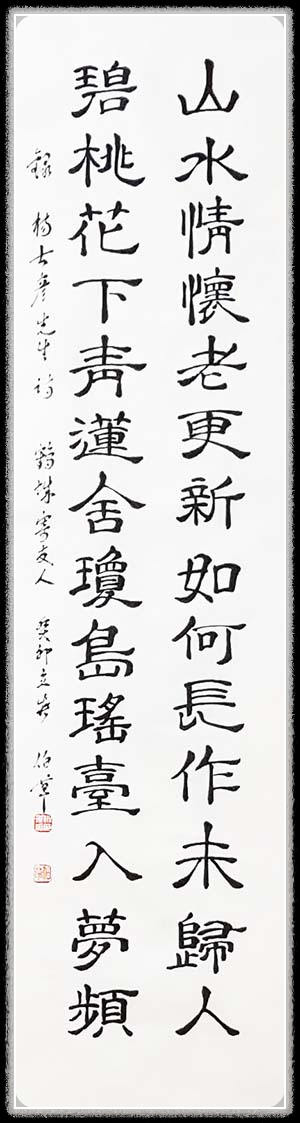 山水情懷老更新如何長作未歸人
碧桃花下青蓮舍瓊島瑤臺入夢頻
錄楊士彥先生詩 寄友人 癸卯立